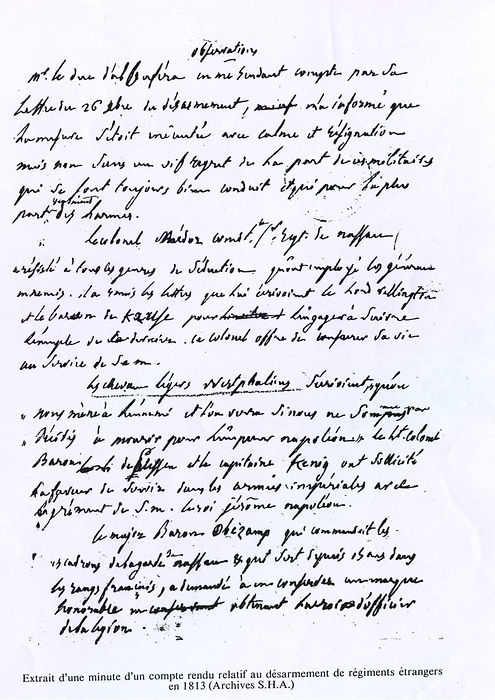 observations
Mr. le duc d'albufera en me rendant compte par sa
lettre du 26 Xbre du désarmement, m'a informé que
la mesure s'étoit exécutée avec calme et résignation
mais non sans un vif regret de la part de ces militaires
qui se sont toujours bien conduit et qui pour la plus
part
Le colonel Meder comdt. le 1er. Regt. de nassau
a résisté à tous les genres de séduction qu'ont employé les généraux
ennemis. il a remis les lettres que lui écrivoient le Lord Wellington
et le baron de Kruse pour l'engager à suivre
l'exemple de ce dernier. ce colonel offre de consacrer sa vie
au service de S. M.
Les chevau légers Westphaliens
" nous mène à l'ennemi et l'on verra si nous ne sommes pas
" décidés à mourir pour l'Empereur napoléon. le Lt. Colonel
Baron de et le capitaine Kenig ont sollicité
la faveur de servir dans les armées impériales avec
l'agrément de S. M. le roi jérôme napoléon.
Le major Baron qui commandoit les
escadrons de nassau et qui sert depuis ans dans
les rangs français, a demandé à une marque
honorable en obtenant la croix d'officier
de la légion.
Extrait d'une minute d'un compte rendu relatif au désarmement de régiments étrangers
en 1813 (Archives S.H.A.)